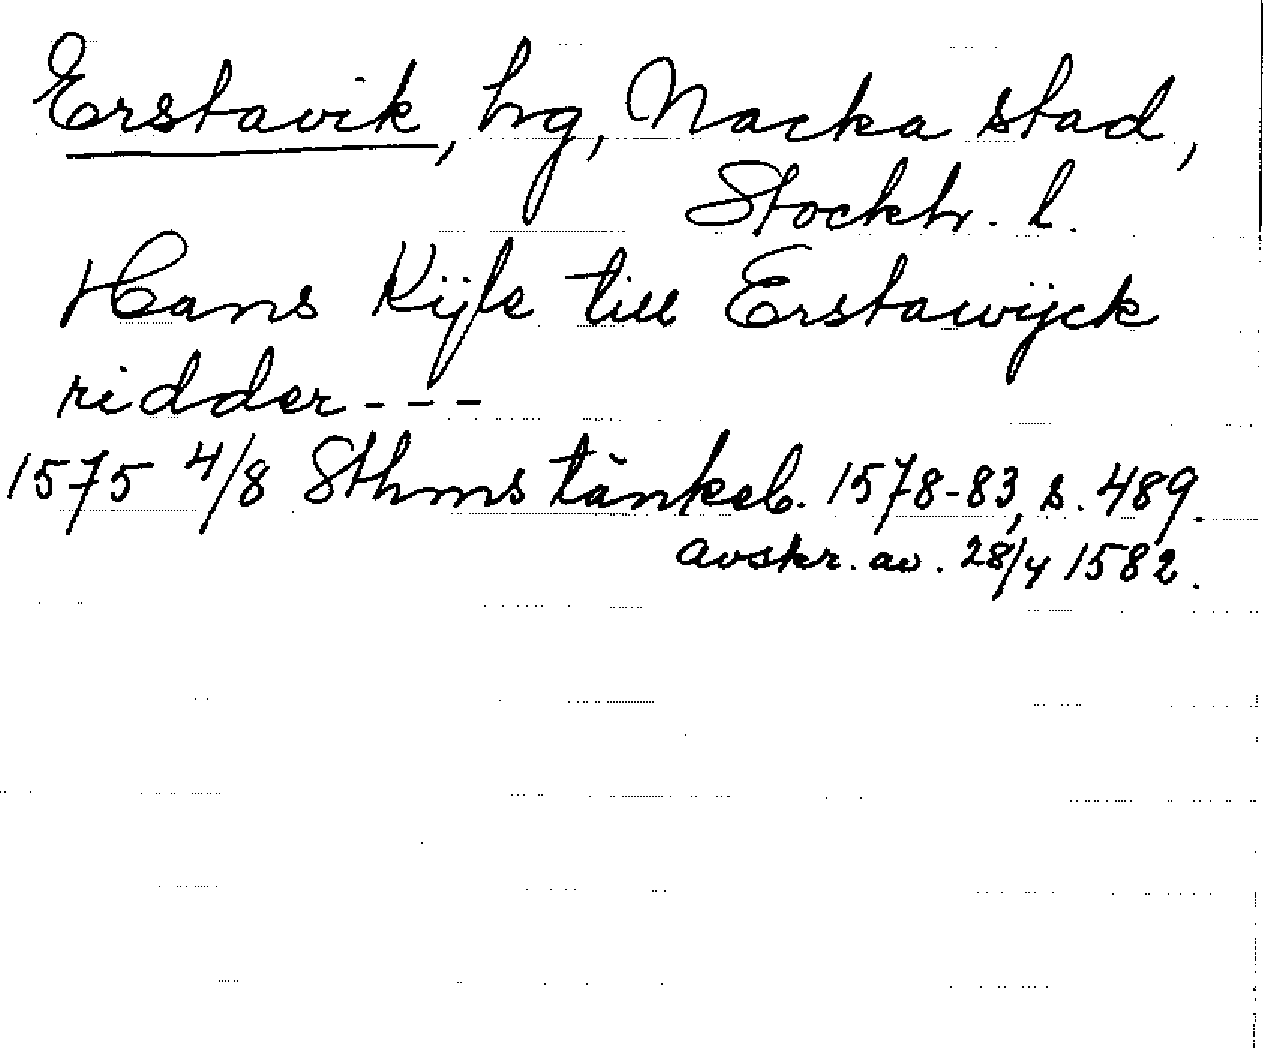 Erstavik, hg, Nacka stad,
Stockh. l.
Hans Kijle till Erstawijck
ridder - - -
1575 4/8 Sthms tänkeb. 1578-83, s. 489.
avskr. av. 28/4 1582.